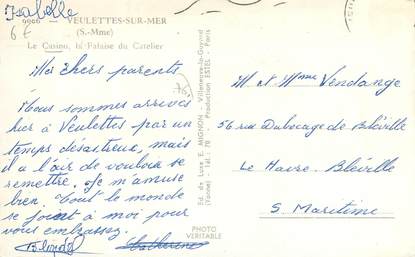 Isabelle
6966 - VEULETTES-SUR-MER
6€
(S.-Mme)
Le Casino, la Falaise du Catelier
Mes Chers parents
Nous sommes arrivés
hier à Veulettes par un
temps désastreux, mais
il a l'air de vouloir se
remettre. Je m'amuse
bien. Tout le monde
se joint à moi pour
vous embrasser
Catherine
Ed. de Luxe E. MIGNON, Villeneuve-la-Guyard
(Yonne) Tél. 78 - Production ESTEL - Paris
PHOTO
VERITABLE
76
M et Mme Vendange
56 rue Dubocage de Bléville
Le Havre. Bléville
S. Maritime